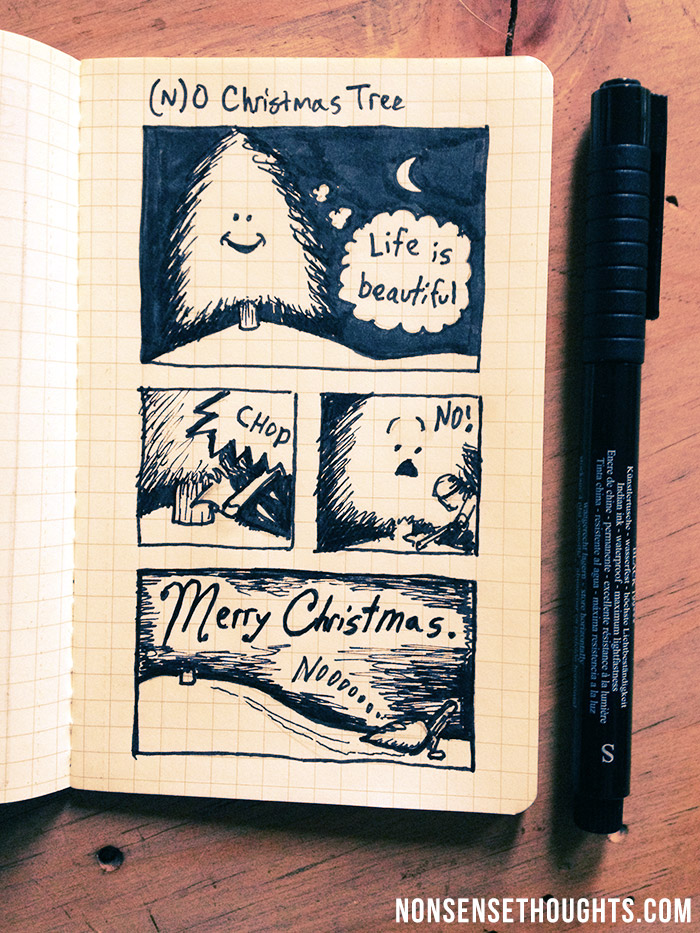 (N)O Christmas Tree
Life is
beautiful
CHOP
NO!
Merry Christmas.
NOOOO....
Künstlertusche - wasserfest - höchste Lichtbeständigkeit
Indian ink - waterproof - maximum lightfastness
Encre de chine - permanente - excellente résistance à la lumière
Tinta china - resistente al agua - máxima resistencia a la luz
waagerecht lagern - store horizontally
S
NONSENSETHOUGHTS.COM